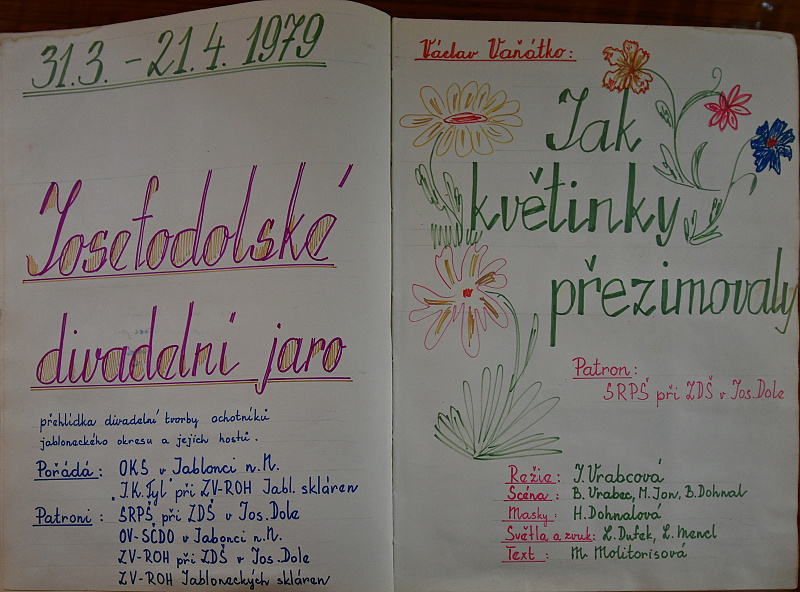 31.3. - 21.4. 1979
Josefodolské
divadelní jaro
přehlídka divadelní tvorby ochotníků
jabloneckého okresu a jejich hostů.
Pořádá: OKS v Jablonci n.N.
"J.K.Tyl" při ZV-ROH Jabl. skláren
Patroni: SRPŠ při ZDŠ v Jos.Dole
OV-SČDO v Jabonci n.N.
ZV-ROH při ZDŠ v Jos.Dole
ZV-ROH Jabloneckých skláren
Václav Vaňátko:
Jak
květinky
přezimovaly
Patron:
SRPŠ při ZDŠ v Jos.Dole
Režie: J.Vrabcová
Scéna: B.Vrabec, M.Jon, B.Dohnal
Masky: H.Dohnalová
Světla a zvuk: L.Dufek, L.Mencl
Text: M.Molitorisová